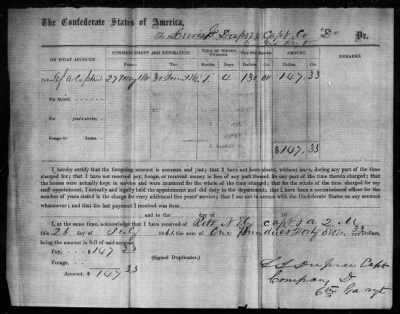 The Confederate States of America,
To Capt. Co. "D" Dr.
ON WHAT ACCOUNT. COMMENCEMENT AND EXPIRATION. TERM OF SERVICE CHARGED. PAY PER MONTH. AMOUNT. REMARKS.
From To Months. Days. Dollars. Cts. Dollars. Cts.
1 4 130 00 147 33
For myself
For years' service,
Forage for horses.
$147 33
I hereby certify that the foregoing account is accurate and just; that I have not been absent, without leave, during any part of the time
charged for; that I have not received pay, forage, or received money in lieu of any part thereof for any part of the time therein charged; that
the horses were actually kept in service and were mustered for the whole of the time charged; that for the whole of the time charged for my
staff appointment, I actually and legally held the appointment and did duty in the department; that I have been a commissioned officer for the
number of years stated in the charge for every additional five years' service; that I am not in arrears with the Confederate States on any account
whatsoever; and that the last payment I received was from
and to the
I, at the same time, acknowledge that I have received of Capt & A Q M
this 24 day of 1861, the sum of One Hundred Forty Seven 33 Dollars,
being the amount in full of said account.
Pay, 147 33
Forage,
Amount, $ 147 33
(Signed Duplicates.)
Capt
Company D
6th Ga Regt